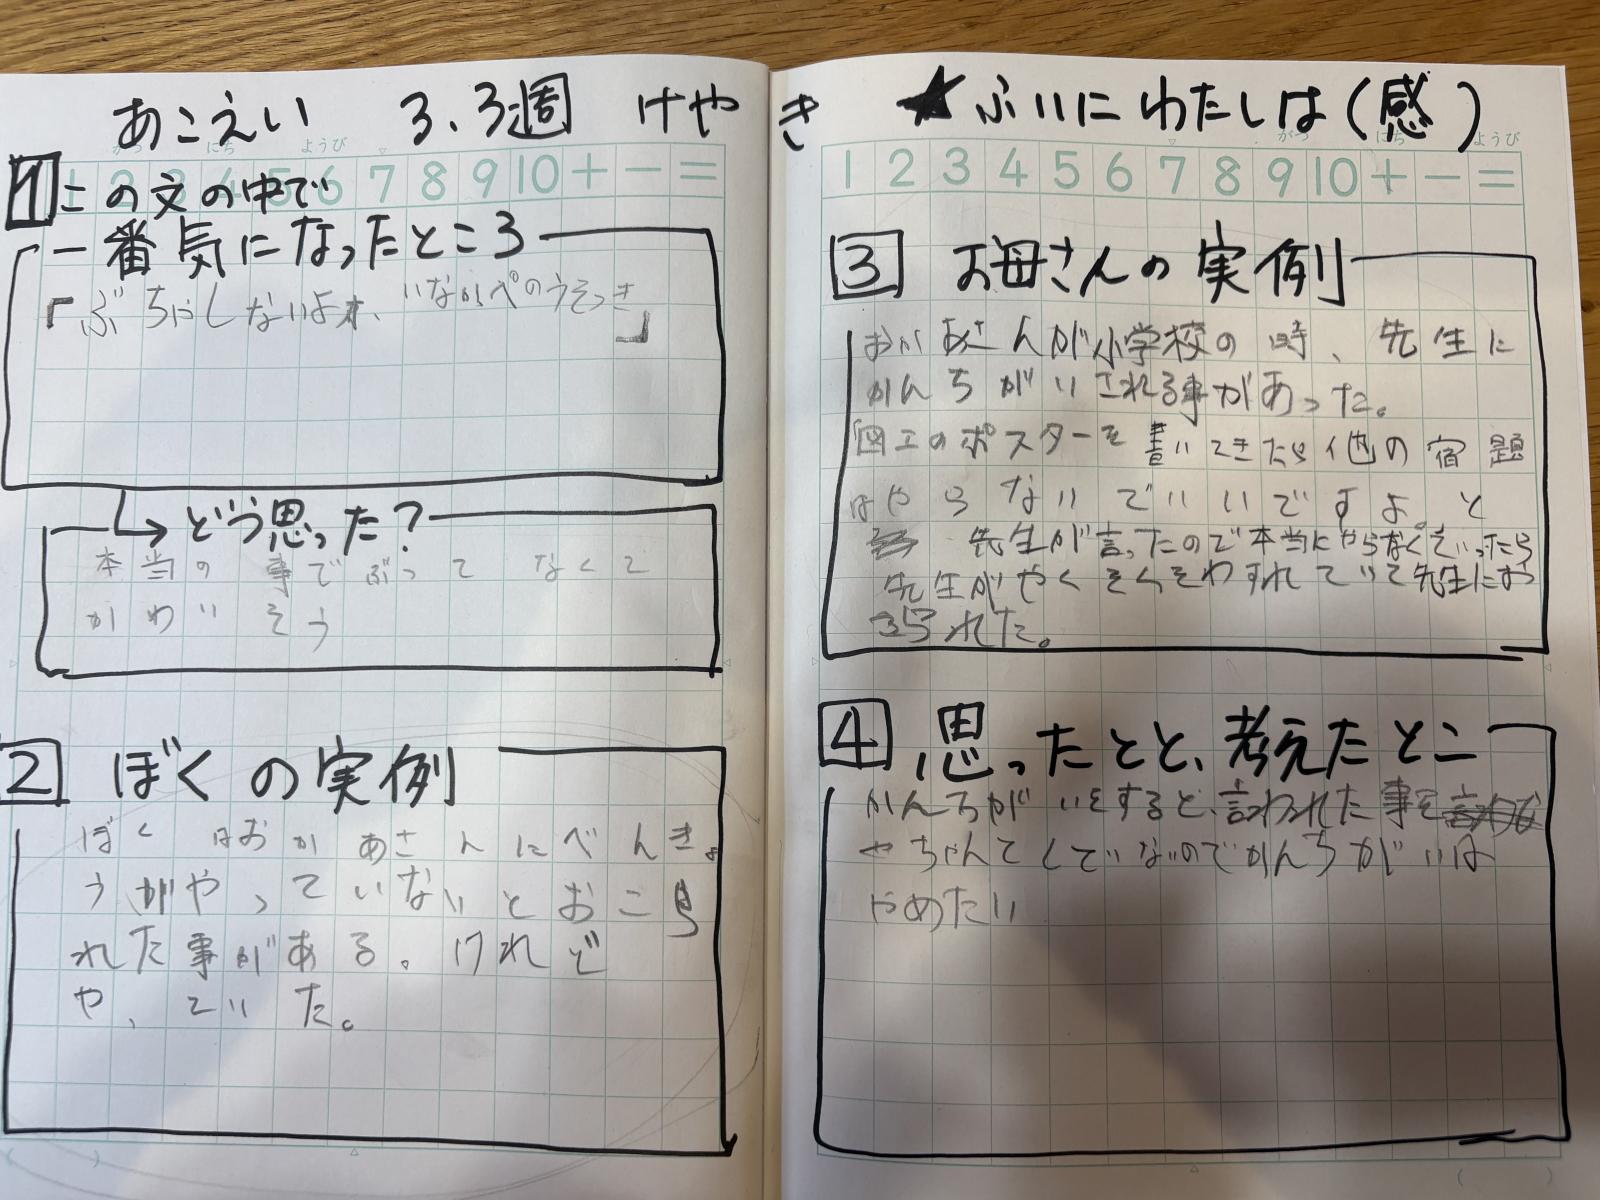 あこえい 3.3週 けやき
1 この文の中で
一番気になったところ
「ぶちゃしないよォ、いなかっぺのうそつき」
どう思った?
本当の事でぶってなくて
かわいそう
2 ぼくの実例
ぼくはおかあさんにべんき。
うがやっていないとおこら
れた事がある。けれど
やっていた。
★ふいにわたしは(感)
3 お母さんの実例
おかあさんが小学校の時、先生に
かんちがいされる事があった。
図工のポスターを書いてきたら他の宿題
はやらないでいいですよ。と
先生が言ったので本当にやらなくていったら
先生がやくそくをわすれていて先生にお
こられた。
4 思ったとと、考えたとこ
かんちがいをすると、言われた事を
ちゃんてしていないのでかんちがいは
やめたい
1 2 3 4 5 6 7 8 9 10 + − =